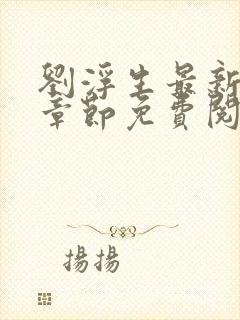 劉浮生最新
章節免費閱
揚揚